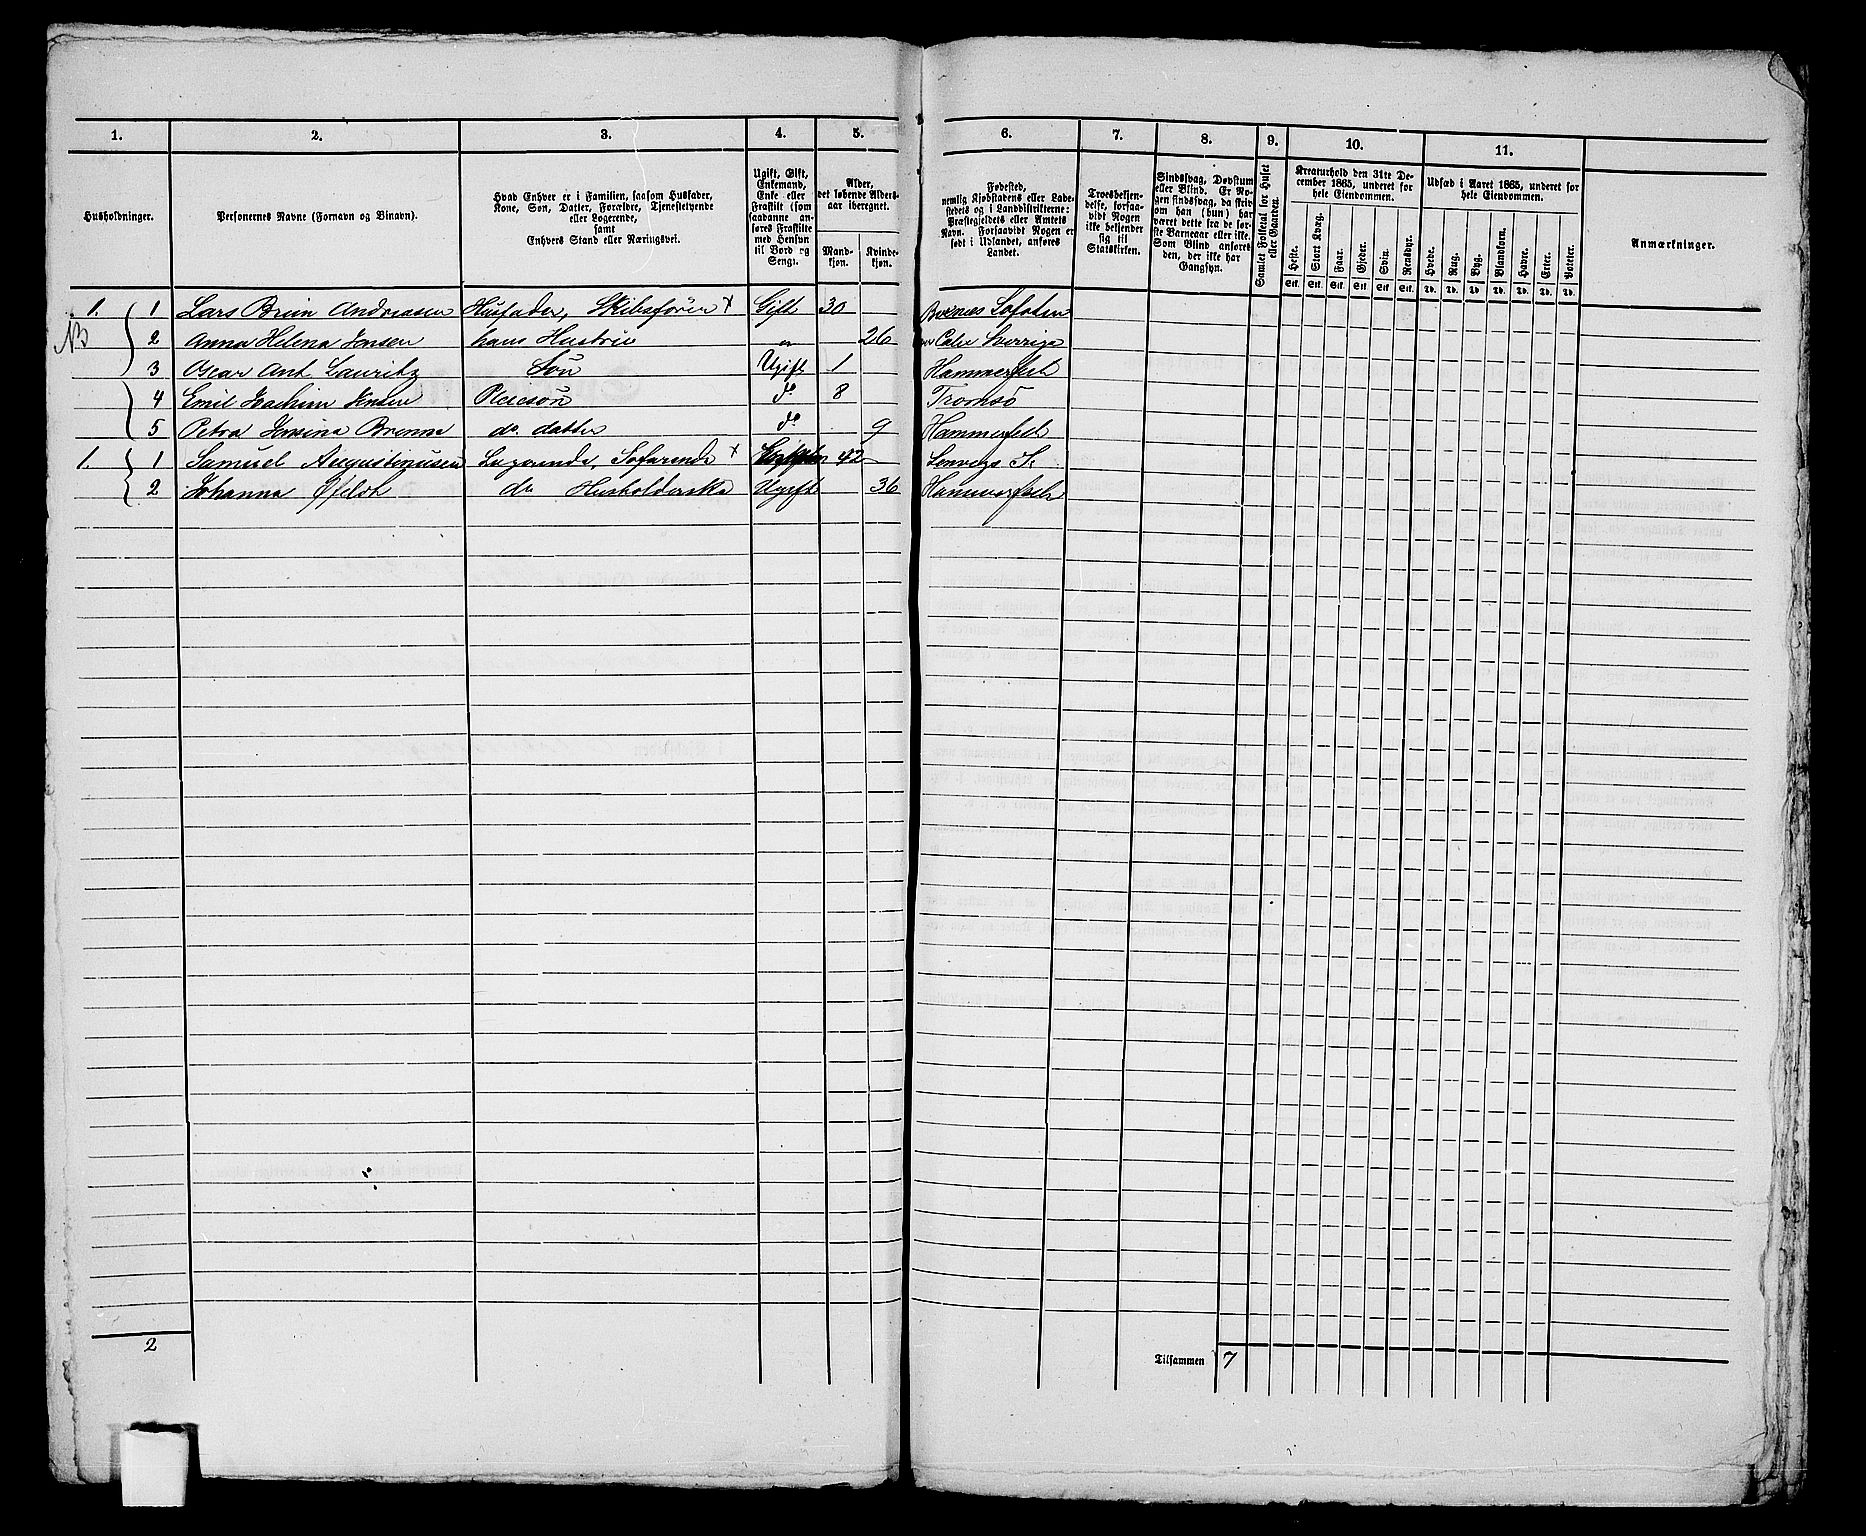 1. 2. 3. 4. 5. 6. 7. 8. 9. 10. 11.
Husholdninger.
Personernes Navne (Fornavn og Binavn).
Hvad Enhver er i Familien, saasom Husfader,
Kone, Søn, Datter, Forældre, Tjenestetyende
eller Logerende,
samt
Enhvers Stand eller Næringsvei.
Ugift, Gift,
Enkemand,
Enke eller
Fraskilt (som
saadanne an-
føres Fraskilte
med Hensyn
til Bord og
Seng).
Alder,
det løbende Alders-
aar iberegnet.
Mand-
kjøn.
Kvinde-
kjøn.
Fødested,
nemlig Kjøbstadens eller Lade-
stedets og i Landdistrikterne:
Præstegjeldets eller Amtets
Navn. Forsaavidt Nogen er
født i Udlandet, anføres
Landet.
Troesbekjen-
delse, forsaa-
vidt Nogen
ikke bekjender
sig til
Statskirken.
Sindssvag, Døvstum
eller Blind. Er No-
gen sindssvag, da skriv
om han (hun) har
været dette fra de før-
ste Barneaar eller ikke.
Som Blind anføres
den, der ikke har
Gangsyn.
Samlet Folketal for Huset
eller Gaarden.
Kreaturhold den 31te De-
cember 1865, underet for
hele Eiendommen.
Heste. Stort Kvæg. Faar. Gjeder. Svin. Rensdyr.
Stk. Stk. Stk. Stk. Stk. Stk.
Udsæd i Aaret 1865, underet for
hele Eiendommen.
Hvede. Rug. Byg. Blandkorn. Havre. Erter. Poteter.
Td. Td. Td. Td. Td. Td. Td.
Anmærkninger.
1. 1 Lars Bruun Andreassen Husfader, Skibsfører x Gift 30 Buxnæs Lofoten
NB 2 Anna Helena Jensen hans Hustrue " 26 Sverrige
3 Oscar Ant Lauritz Søn Ugift 1 Hammerfest
4 Emil Joachim Jensen Pleiesøn do 8 Tromsø
5 Petra Jensina do. datter do 9 Hammerfest
1. 1 Samuel Augustinusen Logerende, Søfarende x 42 Lenvigs
2 Johanna do Husholderske Ugift 36 Hammerfest
2
Tilsammen 7